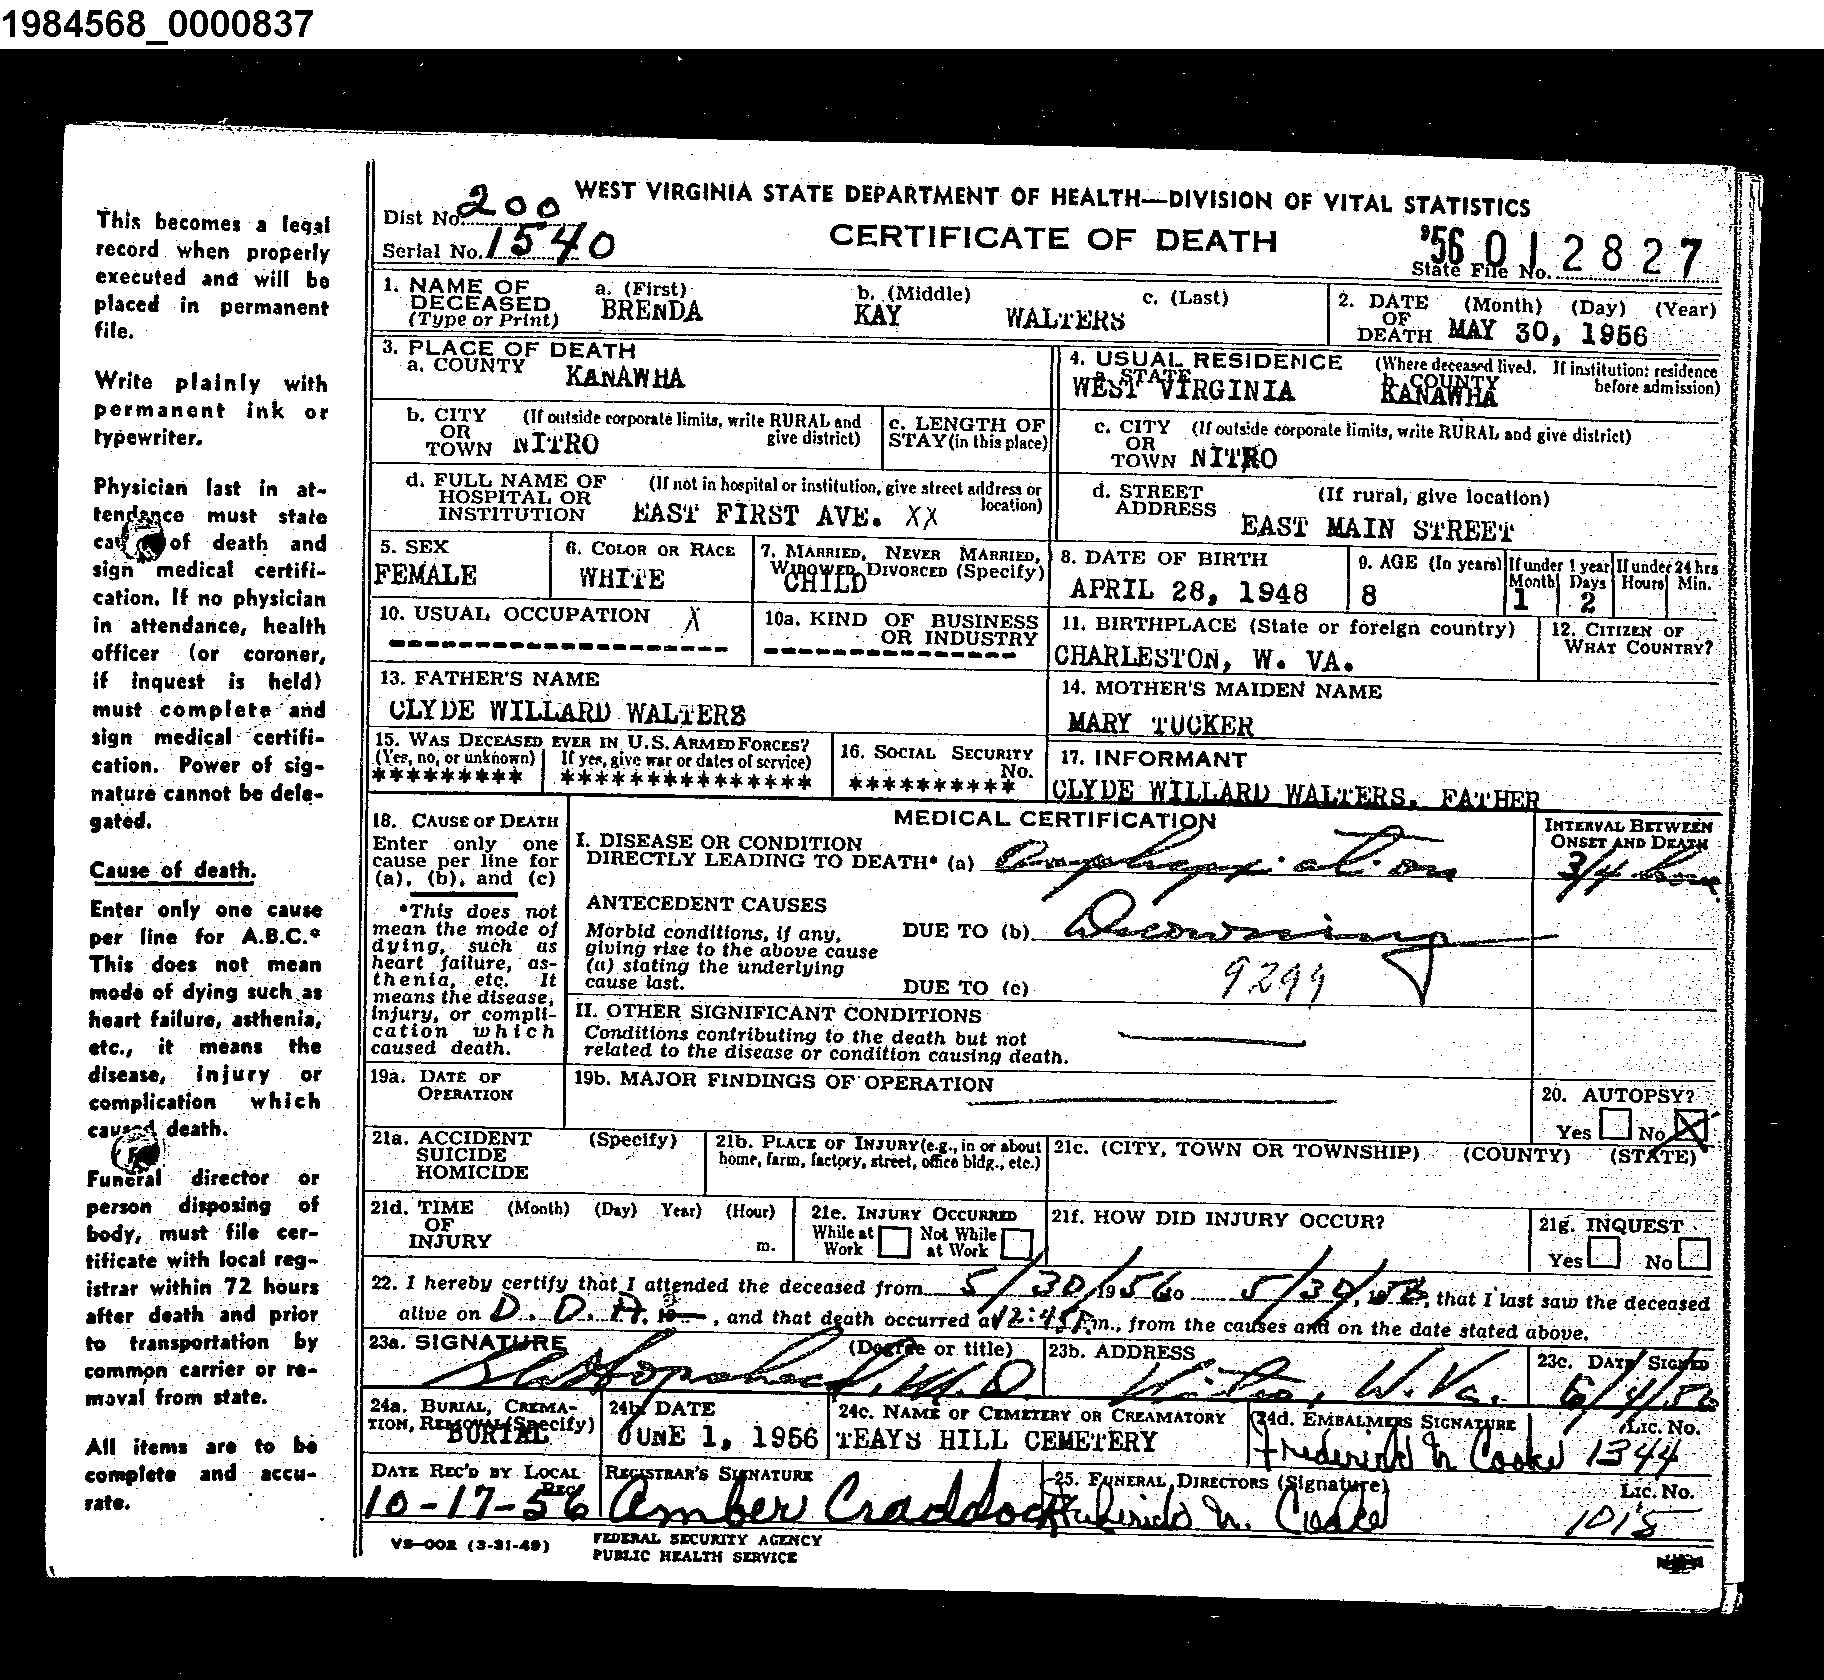 1984568_0000837
This becomes a legal
record when properly
executed and will be
placed in permanent
file.
Write plainly with
permanent ink or
typewriter.
Physician last in at-
tendance must state
of death and
sign medical certifi-
cation. If no physician
in attendance, health
officer (or coroner,
if inquest is held)
must complete and
sign medical certifi-
cation. Power of sig-
nature cannot be dele-
gated.
Cause of death.
Enter only one cause
per line for A.B.C.*
This does not mean
mode of dying such as
heart failure, asthenia,
etc., it means the
disease, injury or
complication which
caused death.
Funeral director or
person disposing of
body, must file cer-
tificate with local reg-
istrar within 72 hours
after death and prior
to transportation by
common carrier or re-
moval from state.
All items are to be
complete and accu-
rate.
WEST VIRGINIA STATE DEPARTMENT OF HEALTH—DIVISION OF VITAL STATISTICS
Dist No. 200
Serial No. 1540
CERTIFICATE OF DEATH
'56 012827
State File No.
1. NAME OF DECEASED (Type or Print)
a. (First) BRENDA
b. (Middle) KAY
c. (Last) WALTERS
2. DATE OF DEATH (Month) (Day) (Year)
MAY 30, 1956
3. PLACE OF DEATH
a. COUNTY KANAWHA
4. USUAL RESIDENCE (Where deceased lived. If institution: residence before admission)
a. STATE WEST VIRGINIA
b. COUNTY KANAWHA
b. CITY OR TOWN (If outside corporate limits, write RURAL and give district)
NITRO
c. LENGTH OF STAY (in this place)
c. CITY OR TOWN (If outside corporate limits, write RURAL and give district)
NITRO
d. FULL NAME OF HOSPITAL OR INSTITUTION (If not in hospital or institution, give street address or location)
EAST FIRST AVE. XX
d. STREET ADDRESS (If rural, give location)
EAST MAIN STREET
5. SEX
FEMALE
6. COLOR OR RACE
WHITE
7. MARRIED, NEVER MARRIED, WIDOWED, DIVORCED (Specify)
CHILD
8. DATE OF BIRTH
APRIL 28, 1948
9. AGE (In years)
8
If under 1 year
Month Days
1 2
If under 24 hrs
Hours Min.
10. USUAL OCCUPATION X
------------------
10a. KIND OF BUSINESS OR INDUSTRY
---------------
11. BIRTHPLACE (State or foreign country)
CHARLESTON, W. VA.
12. CITIZEN OF WHAT COUNTRY?
13. FATHER'S NAME
CLYDE WILLARD WALTERS
14. MOTHER'S MAIDEN NAME
MARY TUCKER
15. WAS DECEASED EVER IN U.S. ARMED FORCES?
(Yes, no, or unknown) If yes, give war or dates of service)
********* ***************
16. SOCIAL SECURITY No.
**********
17. INFORMANT
CLYDE WILLARD WALTERS, FATHER
18. CAUSE OF DEATH
Enter only one
cause per line for
(a), (b), and (c)
*This does not
mean the mode of
dying, such as
heart failure, as-
thenia, etc. It
means the disease,
injury, or compli-
cation which
caused death.
MEDICAL CERTIFICATION
I. DISEASE OR CONDITION
DIRECTLY LEADING TO DEATH* (a) Asphyxiation
INTERVAL BETWEEN ONSET AND DEATH
3/4 hour
ANTECEDENT CAUSES
Morbid conditions, if any,
giving rise to the above cause
(a) stating the underlying
cause last.
DUE TO (b) Drowning
9299
DUE TO (c)
II. OTHER SIGNIFICANT CONDITIONS
Conditions contributing to the death but not
related to the disease or condition causing death.
19a. DATE OF OPERATION
19b. MAJOR FINDINGS OF OPERATION
20. AUTOPSY?
Yes No X
21a. ACCIDENT SUICIDE HOMICIDE (Specify)
21b. PLACE OF INJURY (e.g., in or about home, farm, factory, street, office bldg., etc.)
21c. (CITY, TOWN OR TOWNSHIP) (COUNTY) (STATE)
21d. TIME OF INJURY (Month) (Day) Year) (Hour) m.
21e. INJURY OCCURRED
While at Work Not While at Work
21f. HOW DID INJURY OCCUR?
21g. INQUEST
Yes No
22. I hereby certify that I attended the deceased from 5/30/1956 to 5/30, 1956, that I last saw the deceased
alive on D.O.A. 19, and that death occurred at 12:45 P.m., from the causes and on the date stated above.
23a. SIGNATURE (Degree or title)
M.D.
23b. ADDRESS
Nitro, W. Va.
23c. DATE SIGNED
6/4/56
24a. BURIAL, CREMATION, REMOVAL (Specify)
BURIAL
24b. DATE
JUNE 1, 1956
24c. NAME OF CEMETERY OR CREAMATORY
TEAYS HILL CEMETERY
24d. EMBALMERS SIGNATURE Lic. No.
Frederick N Cooke 1344
DATE REC'D BY LOCAL REG.
10-17-56
REGISTRAR'S SIGNATURE
Amber Craddock
25. FUNERAL DIRECTORS (Signature) Lic. No.
Frederick N. Cooke 1015
VS-002 (3-31-49)
FEDERAL SECURITY AGENCY
PUBLIC HEALTH SERVICE